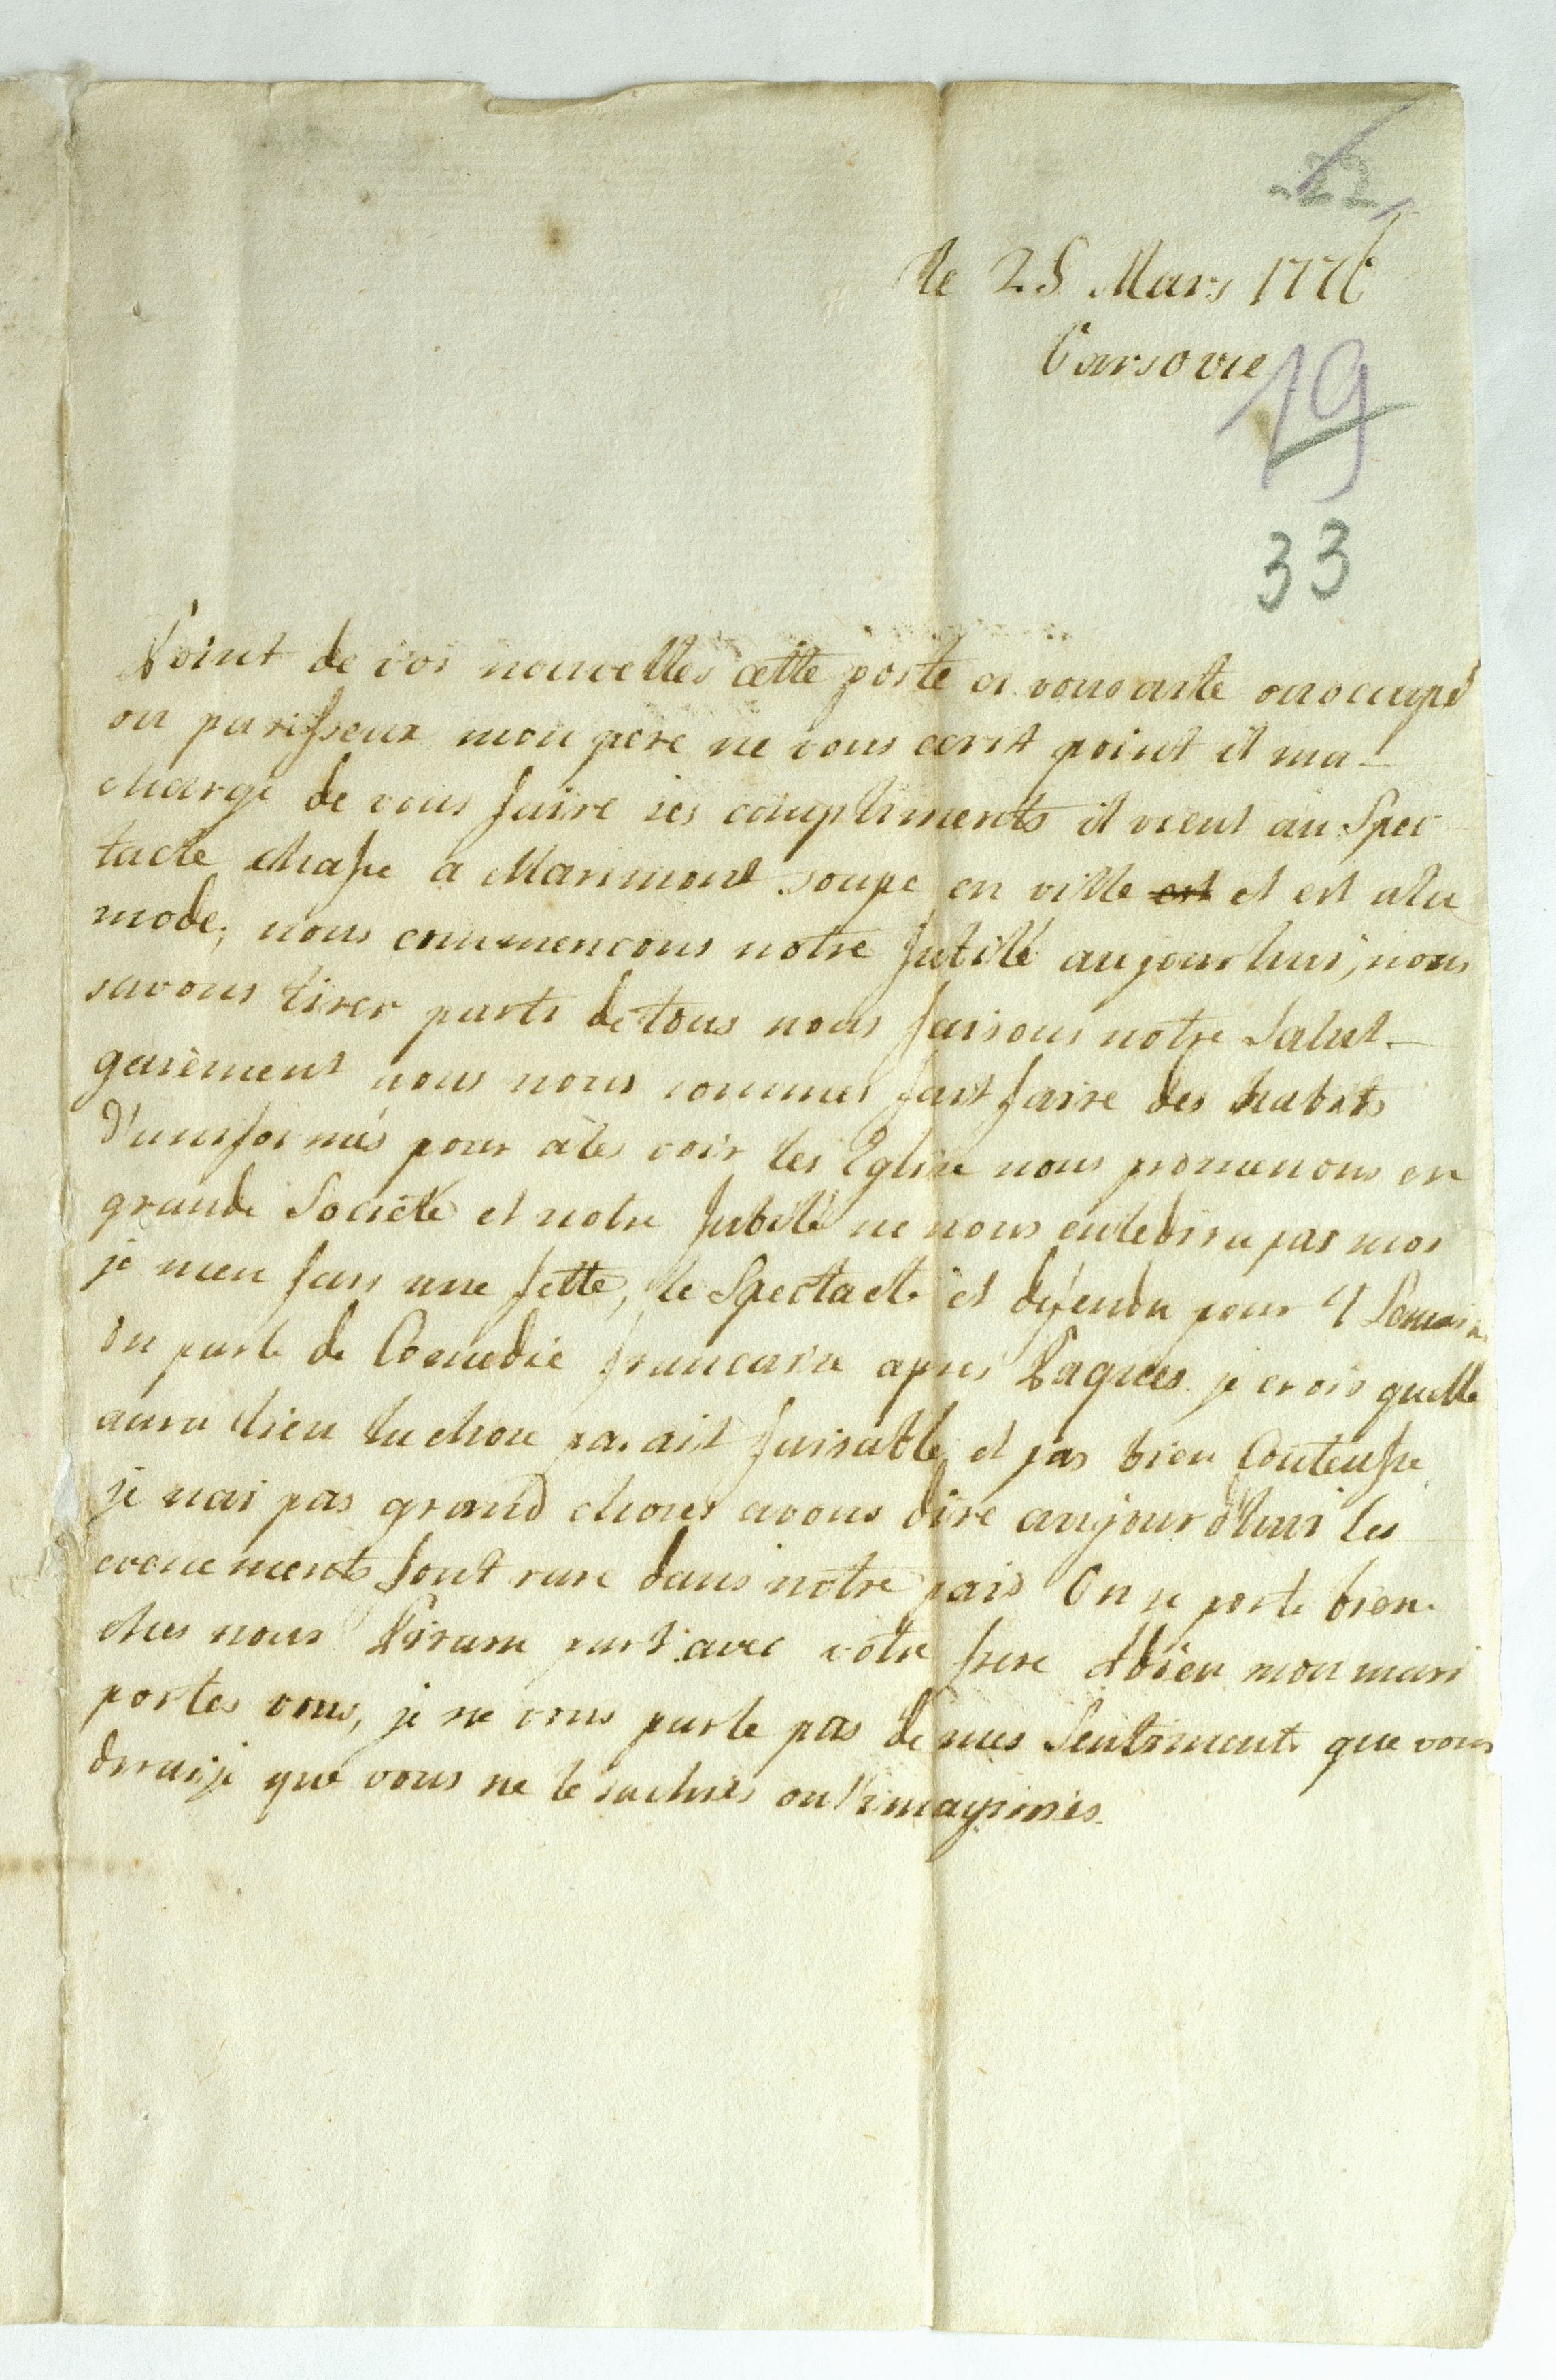 22
le 25 Mars 1776
Varsovie
19
33
Point de vos nouvelles cette poste et vous aste ou ocupé
ou parisseux mon pere ne vous ecrit point il ma
chargé de vous faire ses compliments il vient au Spec
tacle chasse a Marimont soupe en ville est et est ala
mode, nous commencons notre Jubilé aujourhui, nous
savons tirer parti de tous nous faisons notre Salut
gaiement nous nous sommes fait faire des habits
d'uniformes pour ales voir les Eglise nous promenons en
grande Societé et notre Jubilé ne nous enledira pas moi
je men fais une fette, le Spectacle et défendu pour 4 Semaine
on parle de Comedie francaise apres Paques je crois quelle
aura lieu la chose parait faisable et pas bien Couteusse
je nai pas grand choses avous dire aujourd'hui les
evenements sont rare dans notre pais On se porte bien
ches nous Piramy part avec votre frere Adieu mon mari
portes vous, je ne vous parle pas de mes Sentiments que vous
diraije que vous ne le sachiés ou l'imaginiés